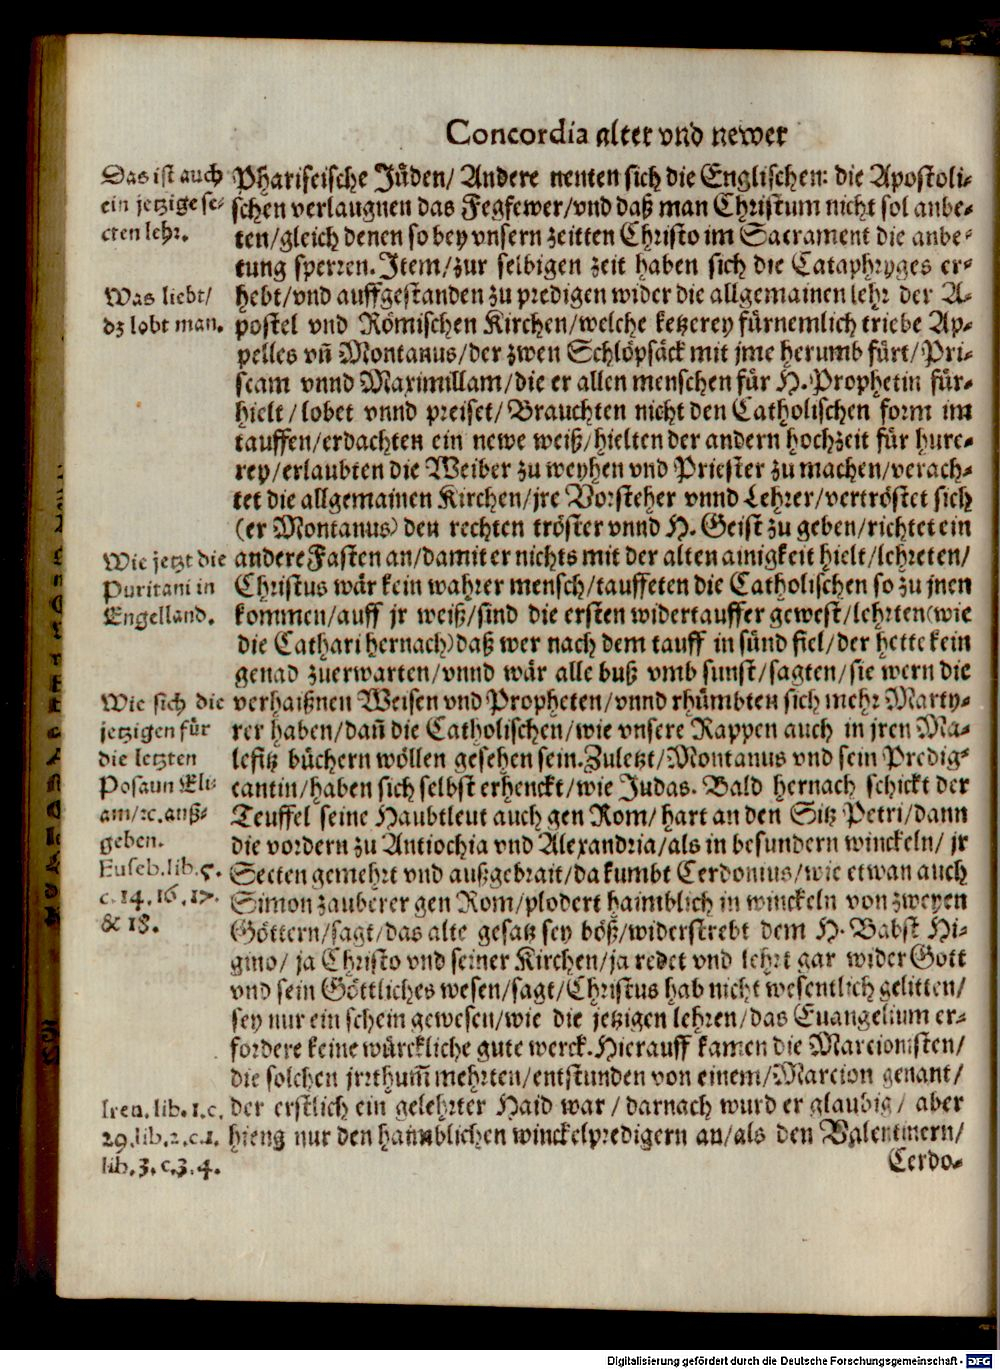 Concordia alter vnd newer
Das ist auch
ein jetzige se-
cten lehr.
Was liebt/
dz lobt man.
Wie jetzt die
Puritani in
Engelland.
Wie sich die
jetzigen für
die letzten
Posaun Eli-
am/ꝛc. auß-
geben.
Euseb. lib. 5.
c. 14. 16. 17.
& 18.
Iren. lib. 1. c.
29. lib. 2. c. 1.
lib. 3. c. 3. 4.
Phariseische Jüden/ Andere nenten sich die Englischen: die Apostoli-
schen verlaugnen das Fegfewer/vnd daß man Christum nicht sol anbe-
ten/gleich denen so bey vnsern zeitten Christo im Sacrament die anbe-
tung sperren. Item/zur selbigen zeit haben sich die Cataphryges er-
hebt/vnd auffgestanden zu predigen wider die allgemainen lehr der A-
postel vnd Römischen Kirchen/welche ketzerey fürnemlich triebe Ap-
pelles vñ Montanus/der zwen Schlöpsäck mit jme herumb fürt/Pri-
scam vnnd Maximillam/die er allen menschen für H. Prophetin für-
hielt/lobet vnnd preiset/Brauchten nicht den Catholischen form im
tauffen/erdachten ein newe weiß/hielten der andern hochzeit für hure-
rey/erlaubten die Weiber zu weyhen vnd Priester zu machen/verach-
tet die allgemainen Kirchen/jre Vorsteher vnnd Lehrer/vertröstet sich
(er Montanus) den rechten tröster vnnd H. Geist zu geben/richtet ein
andere Fasten an/damit er nichts mit der alten ainigkeit hielt/lehreten/
Christus wär kein wahrer mensch/tauffeten die Catholischen so zu jnen
kommen/auff jr weiß/sind die ersten widertauffer gewest/lehrten(wie
die Cathari hernach)daß wer nach dem tauff in sünd fiel/der hette kein
genad zuerwarten/vnnd wär alle buß vmb sunst/sagten/sie wern die
verhaißnen Weisen vnd Propheten/vnnd rhümbten sich mehr Marty-
rer haben/dañ die Catholischen/wie vnsere Rappen auch in jren Ma-
lefitz büchern wöllen gesehen sein. Zuletzt/Montanus vnd sein Predig-
cantin/haben sich selbst erhenckt/wie Judas. Bald hernach schickt der
Teuffel seine Haubtleut auch gen Rom/hart an den Sitz Petri/dann
die vordern zu Antiochia vnd Alexandria/als in besundern winckeln/jr
Secten gemehrt vnd außgebrait/da kumbt Cerdonius/wie etwan auch
Simon zauberer gen Rom/plodert haimblich in winckeln von zweyen
Göttern/sagt/das alte gesatz sey böß/widerstrebt dem H. Babst Hi-
gino/ja Christo vnd seiner Kirchen/ja redet vnd lehrt gar wider Gott
vnd sein Göttliches wesen/sagt/Christus hab nicht wesentlich gelitten/
sey nur ein schein gewesen/wie die jetzigen lehren/das Euangelium er-
fordere keine würckliche gute werck. Hierauff kamen die Marcionisten/
die solchen jrrthum̃ mehrten/entstunden von einem/Marcion genant/
der erstlich ein gelehrter Haid war/darnach wurd er glaubig/aber
hieng nur den haimblichen winckelpredigern an/als den Valentinern/
Cerdo-
Digitalisierung gefördert durch die Deutsche Forschungsgemeinschaft - DFG